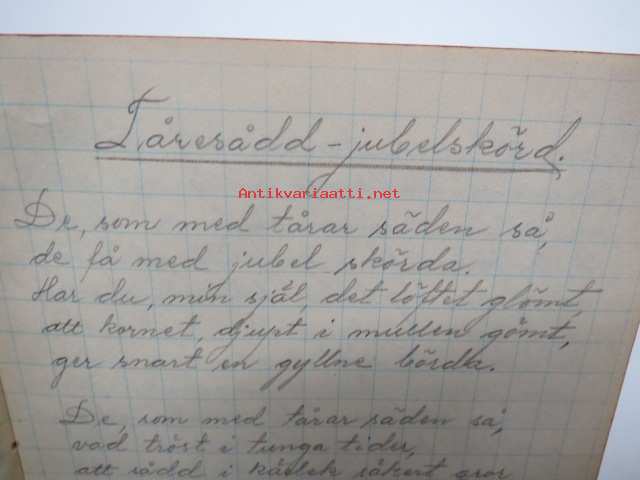 Tåresådd - jubelskörd.
Antikvariaatti.net
De, som med tårar säden så,
de få med jubel skörda.
Har du, min själ, det löftet glömt,
att kornet, djupt i mullen gömt,
ger snart en gyllne börda.
De, som med tårar säden så,
vad tröst i tunga tider,
att sådd i kärlek säkert gror